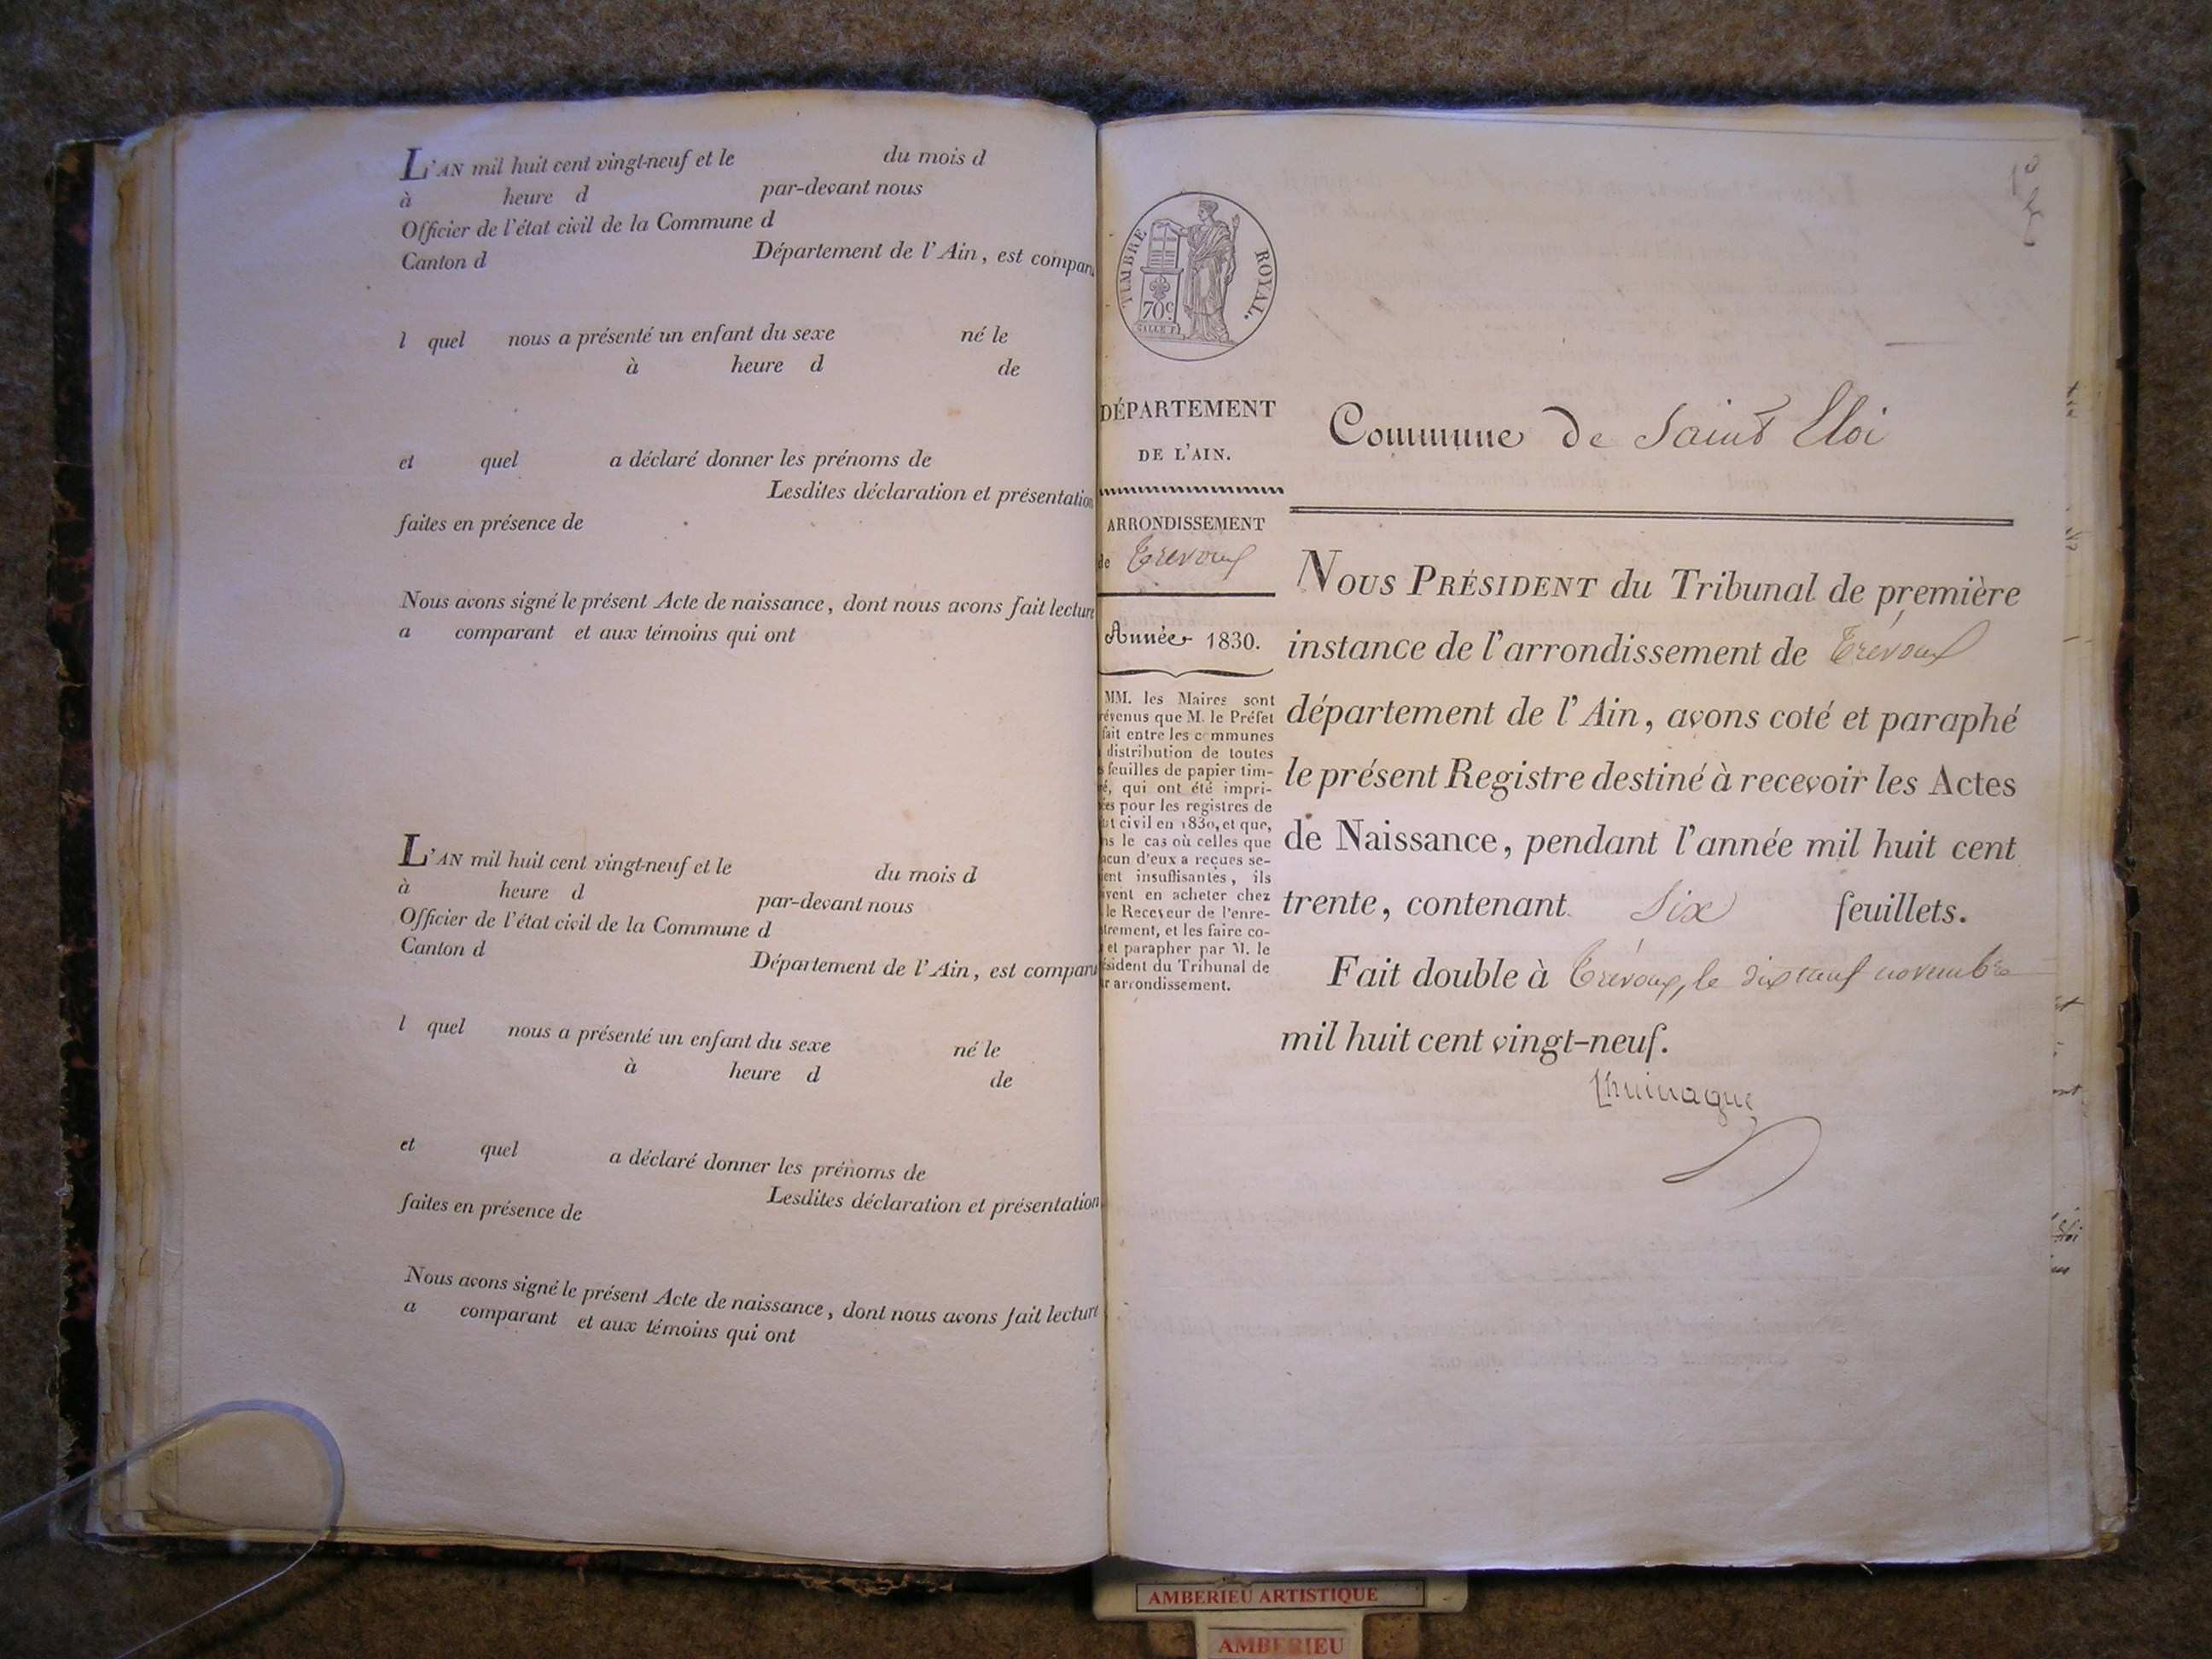 L'AN mil huit cent vingt-neuf et le du mois d
à heure d par-devant nous
Officier de l'état civil de la Commune d
Canton d Département de l'Ain, est comparu
l quel nous a présenté un enfant du sexe né le
à heure d de
et quel a déclaré donner les prénoms de
Lesdites déclaration et présentation
faites en présence de
Nous avons signé le présent Acte de naissance, dont nous avons fait lecture
a comparant et aux témoins qui ont
L'AN mil huit cent vingt-neuf et le du mois d
à heure d par-devant nous
Officier de l'état civil de la Commune d
Canton d Département de l'Ain, est comparu
l quel nous a présenté un enfant du sexe né le
à heure d de
et quel a déclaré donner les prénoms de
Lesdites déclaration et présentation
faites en présence de
Nous avons signé le présent Acte de naissance, dont nous avons fait lecture
a comparant et aux témoins qui ont
TIMBRE ROYAL.
70c
DÉPARTEMENT
DE L'AIN.
ARRONDISSEMENT
de Trévoux
Année 1830.
MM. les Maires sont
évenus que M. le Préfet
fait entre les communes
distribution de toutes
s feuilles de papier tim-
é, qui ont été impri-
es pour les registres de
at civil en 1830, et que,
ns le cas où celles que
acun d'eux a reçues se-
ent insuffisantes, ils
ivent en acheter chez
le Receveur de l'enre-
trement, et les faire co-
et parapher par M. le
ésident du Tribunal de
r arrondissement.
Commune de Saint Eloi
NOUS PRÉSIDENT du Tribunal de première
instance de l'arrondissement de Trévoux
département de l'Ain, avons coté et paraphé
le présent Registre destiné à recevoir les Actes
de Naissance, pendant l'année mil huit cent
trente, contenant Six feuillets.
Fait double à Trévoux, le dix neuf novembre
mil huit cent vingt-neuf.
AMBERIEU ARTISTIQUE
AMBERIEU